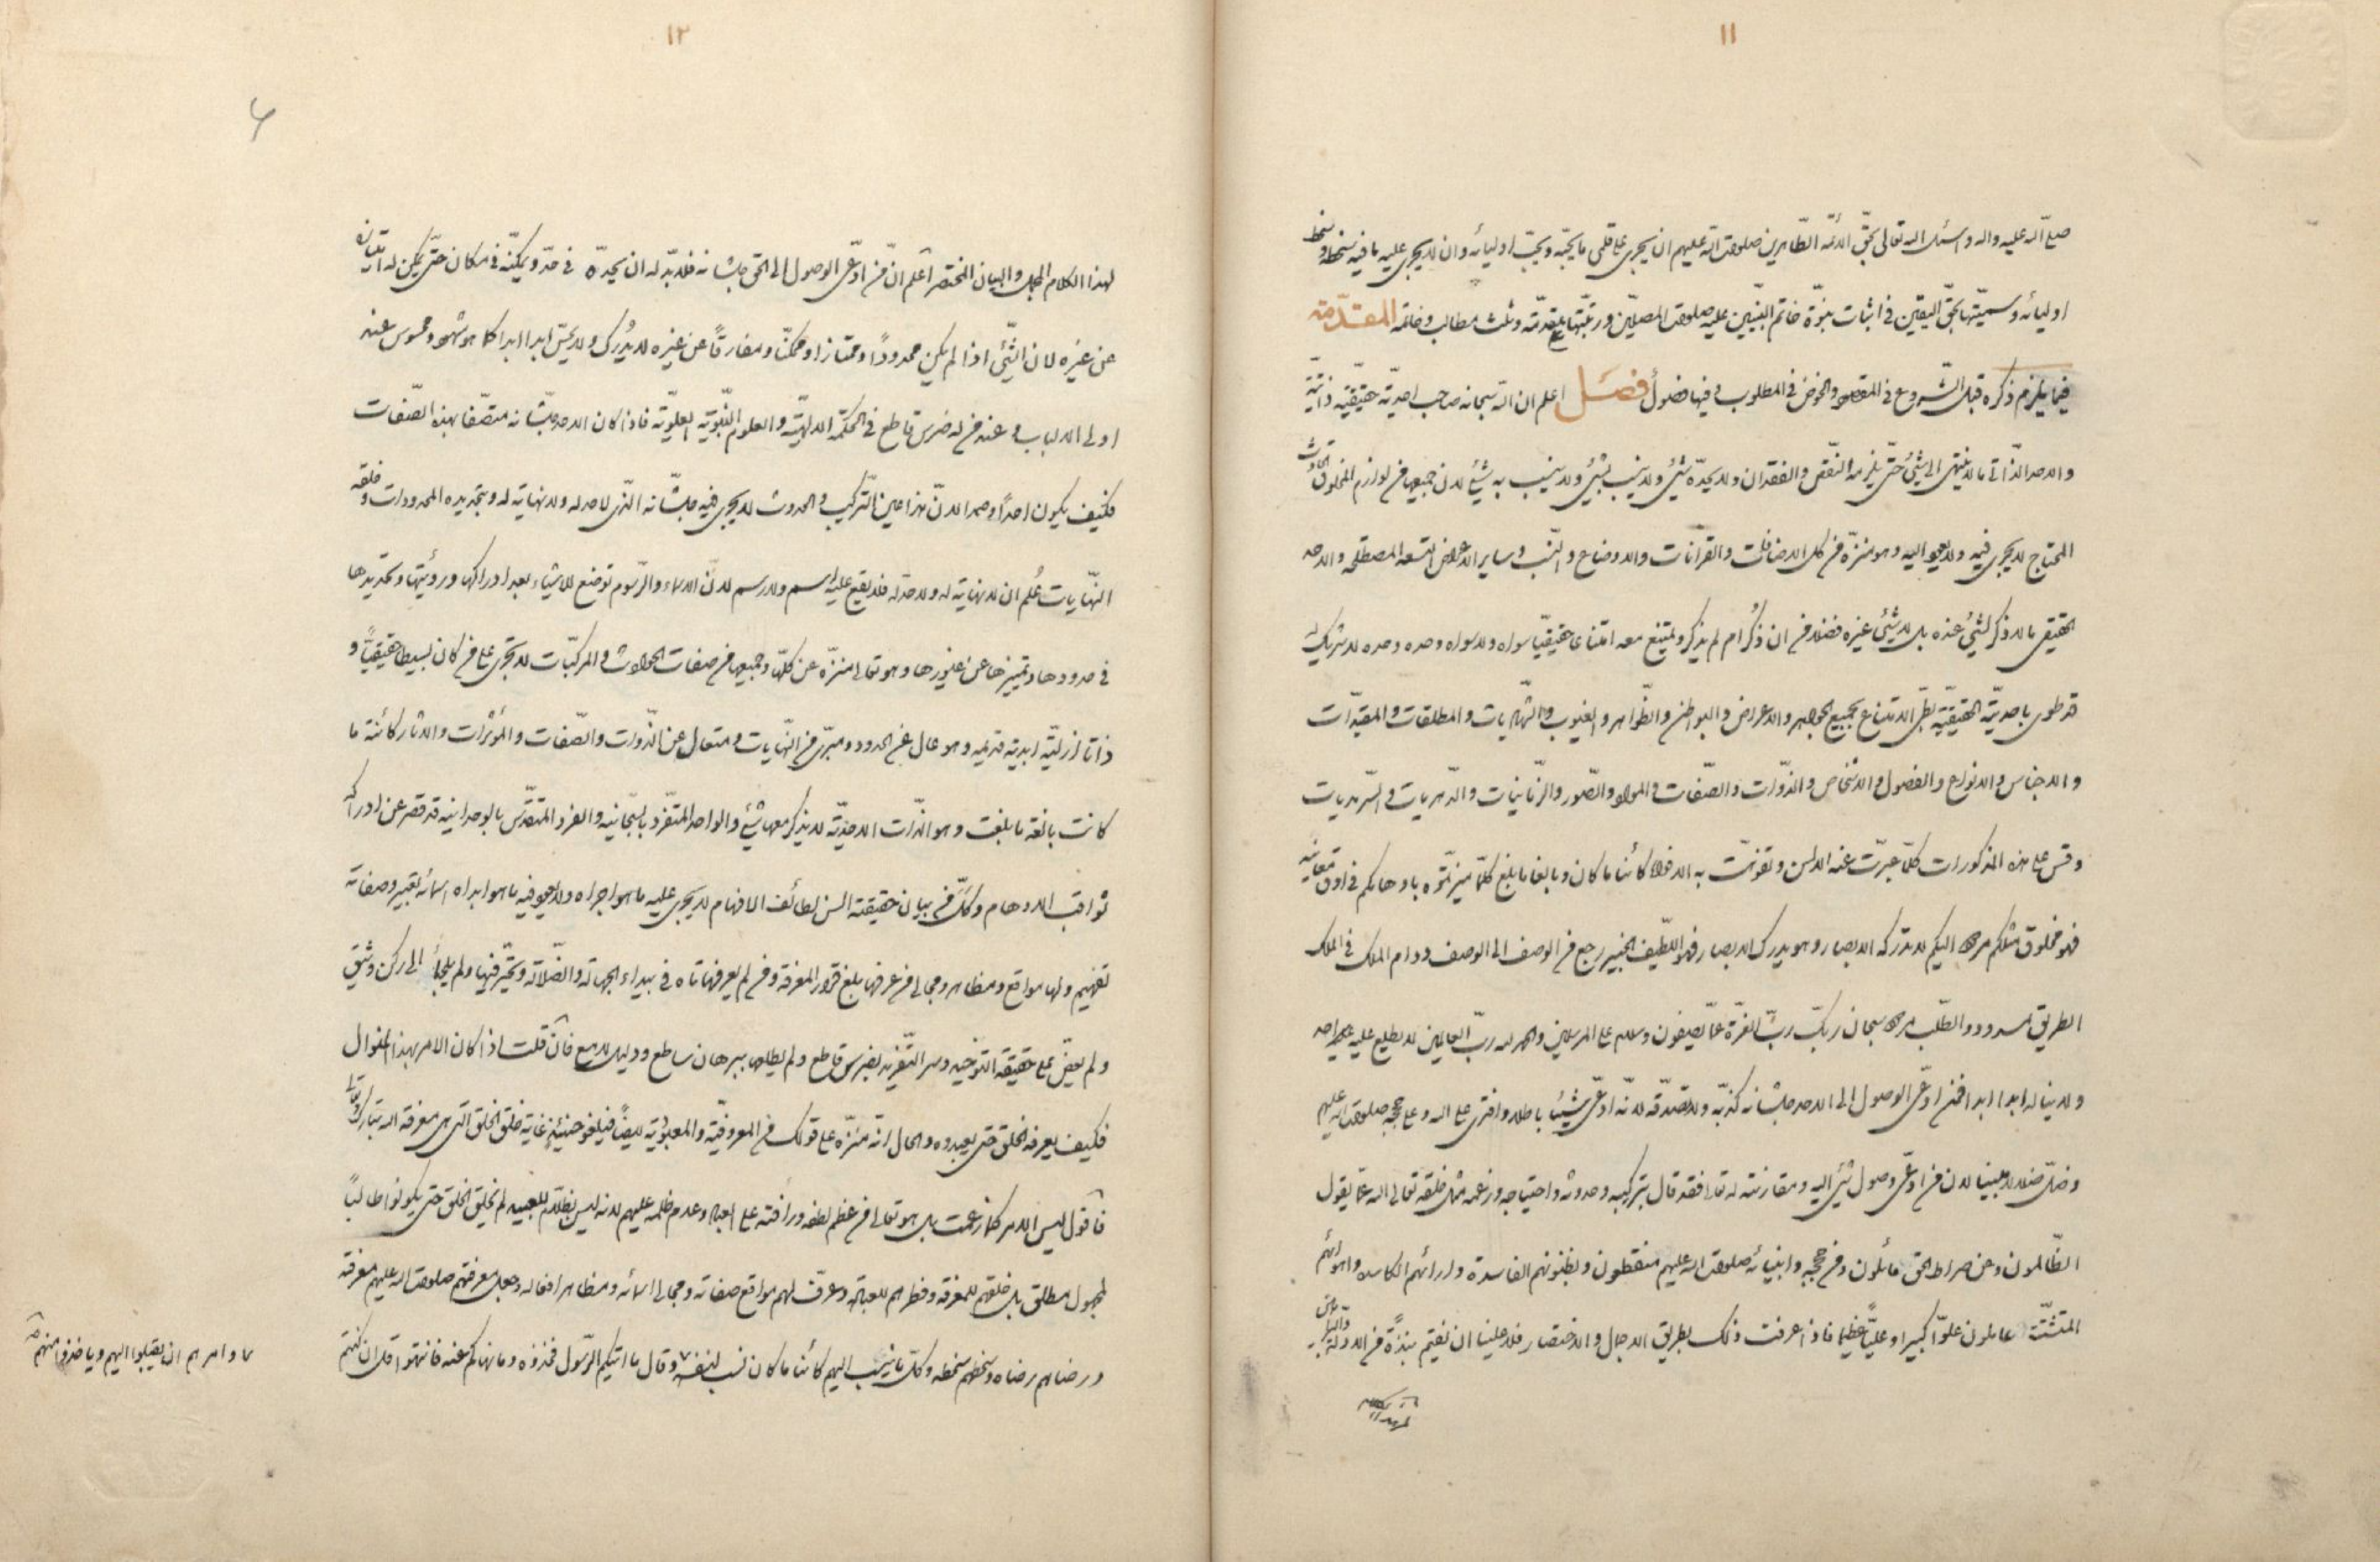 ١١
صلى الله عليه واله واسئل الله تعالى بحق الائمة الطاهرين صلوات الله عليهم ان يجرى على قلمى ما يحبه ويحب اوليائه وان لا يجرى عليه ما فيه سخطه وسخط
اوليائه وسميتها بحق اليقين فى اثبات نبوة خاتم النبيين عليه صلوات المصلين ورتبتها على مقدمة وثلث مطالب وخاتمة المقدمة
فيما يلزم ذكره قبل الشروع فى المقصود والخوض فى المطلوب وفيها فصول فصل اعلم ان الله سبحانه صاحب احدية حقيقية ذاتية
والاحد الذاتى ما لا ينتهى الى شئ حتى يلزمه النقص والفقدان ولا يحده شئ ولا ينسب بشئ ولا ينسب به شئ لان جميعها من لوازم المخلوق الحادث
المحتاج لا يجرى فيه ولا يعود اليه وهو منزه من كل الاضافات والقرانات والاوضاع والنسب وساير الاعراض التسعة المصطلحة والاحد
الحقيقى ما لا ذكر لشئ عنده بل لا شئ غيره فضلا من ان ذكر ام لم يذكر ويمتنع معه امتناعا حقيقيا سواه ولا سواه وحده وحده لا شريك له
قد طوى باحديته الحقيقية بطى الامتناع بجميع الجواهر والاعراض والبواطن والظواهر والغيوب والشهاديات والمطلقات والمقيدات
والاجناس والانواع والفصول والاشخاص والذوات والصفات والمواد والصور والزمانيات والدهريات والسرمديات
وقس على هذه المذكورات كلما عبرت عنه الالسن وتفوهت به الافواه كائنا ما كان وبالغا ما بلغ كلما ميزتموه باوهامكم فى ادق معانيه
فهو مخلوق مثلكم مردود اليكم لا تدركه الابصار وهو يدرك الابصار وهو اللطيف الخبير رجع من الوصف الى الوصف ودام الملك فى الملك
الطريق مسدود والطلب مردود سبحان ربك رب العزة عما يصفون وسلام على المرسلين والحمد لله رب العالمين لا يطلع عليه احد
ولا يناله ابدا ابدا فمن ادعى الوصول الى الاحد جل شانه كذبه ولا تصدقه لانه ادعى شيئا باطلا وافترى على الله وعلى حججه صلوات الله عليهم
وضل ضلالا مبينا لان من ادعى وصول شئ اليه ومقارنته له تعالى فقد قال بتركيبه وحدوثه واحتياجه وزعمه مثل خلقه تعالى الله عما يقول
الظالمون وعن صراط الحق مائلون ومن حججه وانبيائه صلوات الله عليهم منقطعون وبظنونهم الفاسدة وارائهم الكاسدة واهوائهم
المتشتتة عاملون علوا كبيرا وعليا عظيما فاذا عرفت ذلك بطريق الاجمال والاختصار فلا علينا ان نقيم نبذة من الادلة
١٢
لهذا الكلام المجمل والبيان المختصر اعلم ان من ادعى الوصول الى الحق جل شانه فلا بد له ان يحده فى حد ويمكنه فى مكان حتى يمكن له
عن غيره لان الشئ اذا لم يكن محدودا وممتازا وممكنا ومفارقا عن غيره لا يدرك ولا يحس ابدا ابدا كما هو مشهود ومحسوس عند
اولى الالباب وعند من له ضرس قاطع فى الحكمة الالهية والعلوم النبوية العلوية فاذا كان الاحد جل شانه متصفا بهذه الصفات
فكيف يكون احدا وصمدا لان هذا عين التركيب والحدوث لا يجرى فيه جل شانه الذى لا حد له ولا نهاية له وبتحديده المحدودات وخلقه
النهايات علم ان لا نهاية له ولا حد له فلا يقع عليه اسم ولا رسم لان الاسماء والرسوم توضع للاشياء بعد ادراكها ورؤيتها وتحديدها
فى حدودها وتميزها عن غيرها وهو تعالى منزه عن كلها وجميعها من صفات الحوادث والمركبات لا تجرى على من كان بسيطا حقيقيا و
ذاتا ازلية ابدية قديمة وهو عال عن الحدود ومبرى من النهايات ومتعال عن الذوات والصفات والمؤثرات والاثار كائنة ما
كانت بالغة ما بلغت وهو الذات الاحدية لا يذكر معها شئ والواحد المتفرد بالسبحانية والفرد المتقدس بالوحدانية قد قصر عن ادراكه
ثواقب الاوهام وكل من بيان حقيقته السن لطائف الافهام لا يجرى عليه ما هو اجراه ولا يعود فيه ما هو ابداه اسمائه تعبير وصفاته
تفهيم ولها مواقع ومظاهر ومجالى من عرفها بلغ قرار المعرفة ومن لم يعرفها تاه فى بيداء الجهالة والضلالة وتحير فيها ولم يلجأ الى ركن وثيق
ولم يعض على حقيقة التوحيد وسر التفريد بضرس قاطع ولم يطلها ببرهان ساطع ودليل لامع فان قلت اذا كان الامر بهذا المنوال
فكيف يعرفه الخلق حتى يعبدوه والحال انه منزه على قولك من المعروفية والمعبودية ايضا فيلغو حينئذ غاية خلق الخلق التى هى معرفة الله تبارك وتعالى
فاقول ليس الامر كما زعمت بل هو تعالى من عظم لطفه ورافته على العباد وعدم ظلمه عليهم لانه ليس بظلام للعبيد لم يخلق الخلق حتى يكونوا طالبا
لمجهول مطلق بل خلقهم للمعرفة وفطرهم للعبادة وعرف لهم مواقع صفاته ومجالى اسمائه ومظاهر افعاله وجعل معرفتهم صلوات الله عليهم معرفته
ورضاهم رضاه وسخطهم سخطه وكل ما ينسب اليهم كائنا ما كان نسب لنفسه وقال ما اتيكم الرسول فخذوه وما نهاكم عنه فانتهوا قل ان كنتم
وامرهم ان يقبلوا اليهم وياخذوا منهم